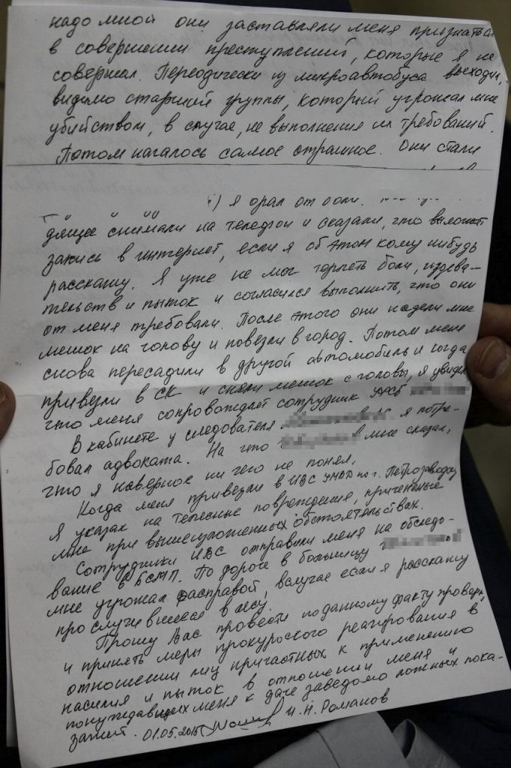 надо мной они заставляли меня признаться
в совершении преступлений, которые я не
совершал. Переодически из микроавтобуса выходил,
видимо старший группы, который угрожал мне
убийством, в случае, не выполнения их требований.
Потом началось самое страшное. Они стали
я орал от боли.
снимали на телефон и сказали, что выложат
запись в интернет, если я об этом кому нибудь
расскажу. Я уже не мог терпеть боли, издева-
тельств и пыток и согласился выполнить, что они
от меня требовали. После этого они надели мне
мешок на голову и повезли в город. Потом меня
снова пересадили в другой автомобиль и когда
привезли в СК и сняли мешок с головы, я увидел
что меня сопровождает сотрудник
В кабинете у следователя я потре-
бовал адвоката. На что мне сказал,
что я наверное ни чего не понял.
Когда меня привезли в ИВС УМВД по г. Петрозаводску
Я указал на телесные повреждения, причинённые
мне при вышеизложенных обстоятельствах.
Сотрудники ИВС отправили меня на обследо-
вание в БСМП. По дороге в больницу
мне угрожал расправой, вслучае если я расскажу
про случившееся в лесу.
Прошу Вас провести по данному факту проверку
и принять меры прокурского реагирования в
отношении лиц причастных к применению
насилия и пыток в отношении меня и
понуждавших меня к даче заведомо ложных пока-
заний. 01.05.2015 И.Н. Романов